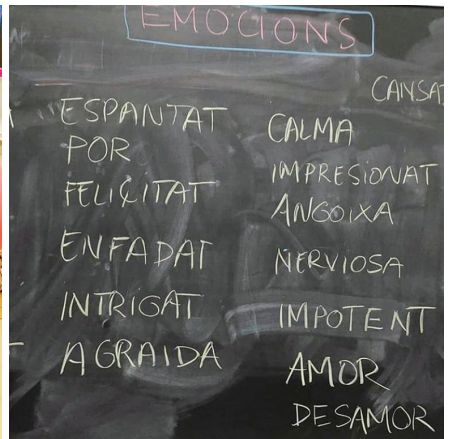 EMOCIONS
CANSAT
ESPANTAT
POR
FELICITAT
ENFADAT
INTRIGAT
AGRAIDA
CALMA
IMPRESIONAT
ANGOIXA
NERVIOSA
IMPOTENT
AMOR
DESAMOR